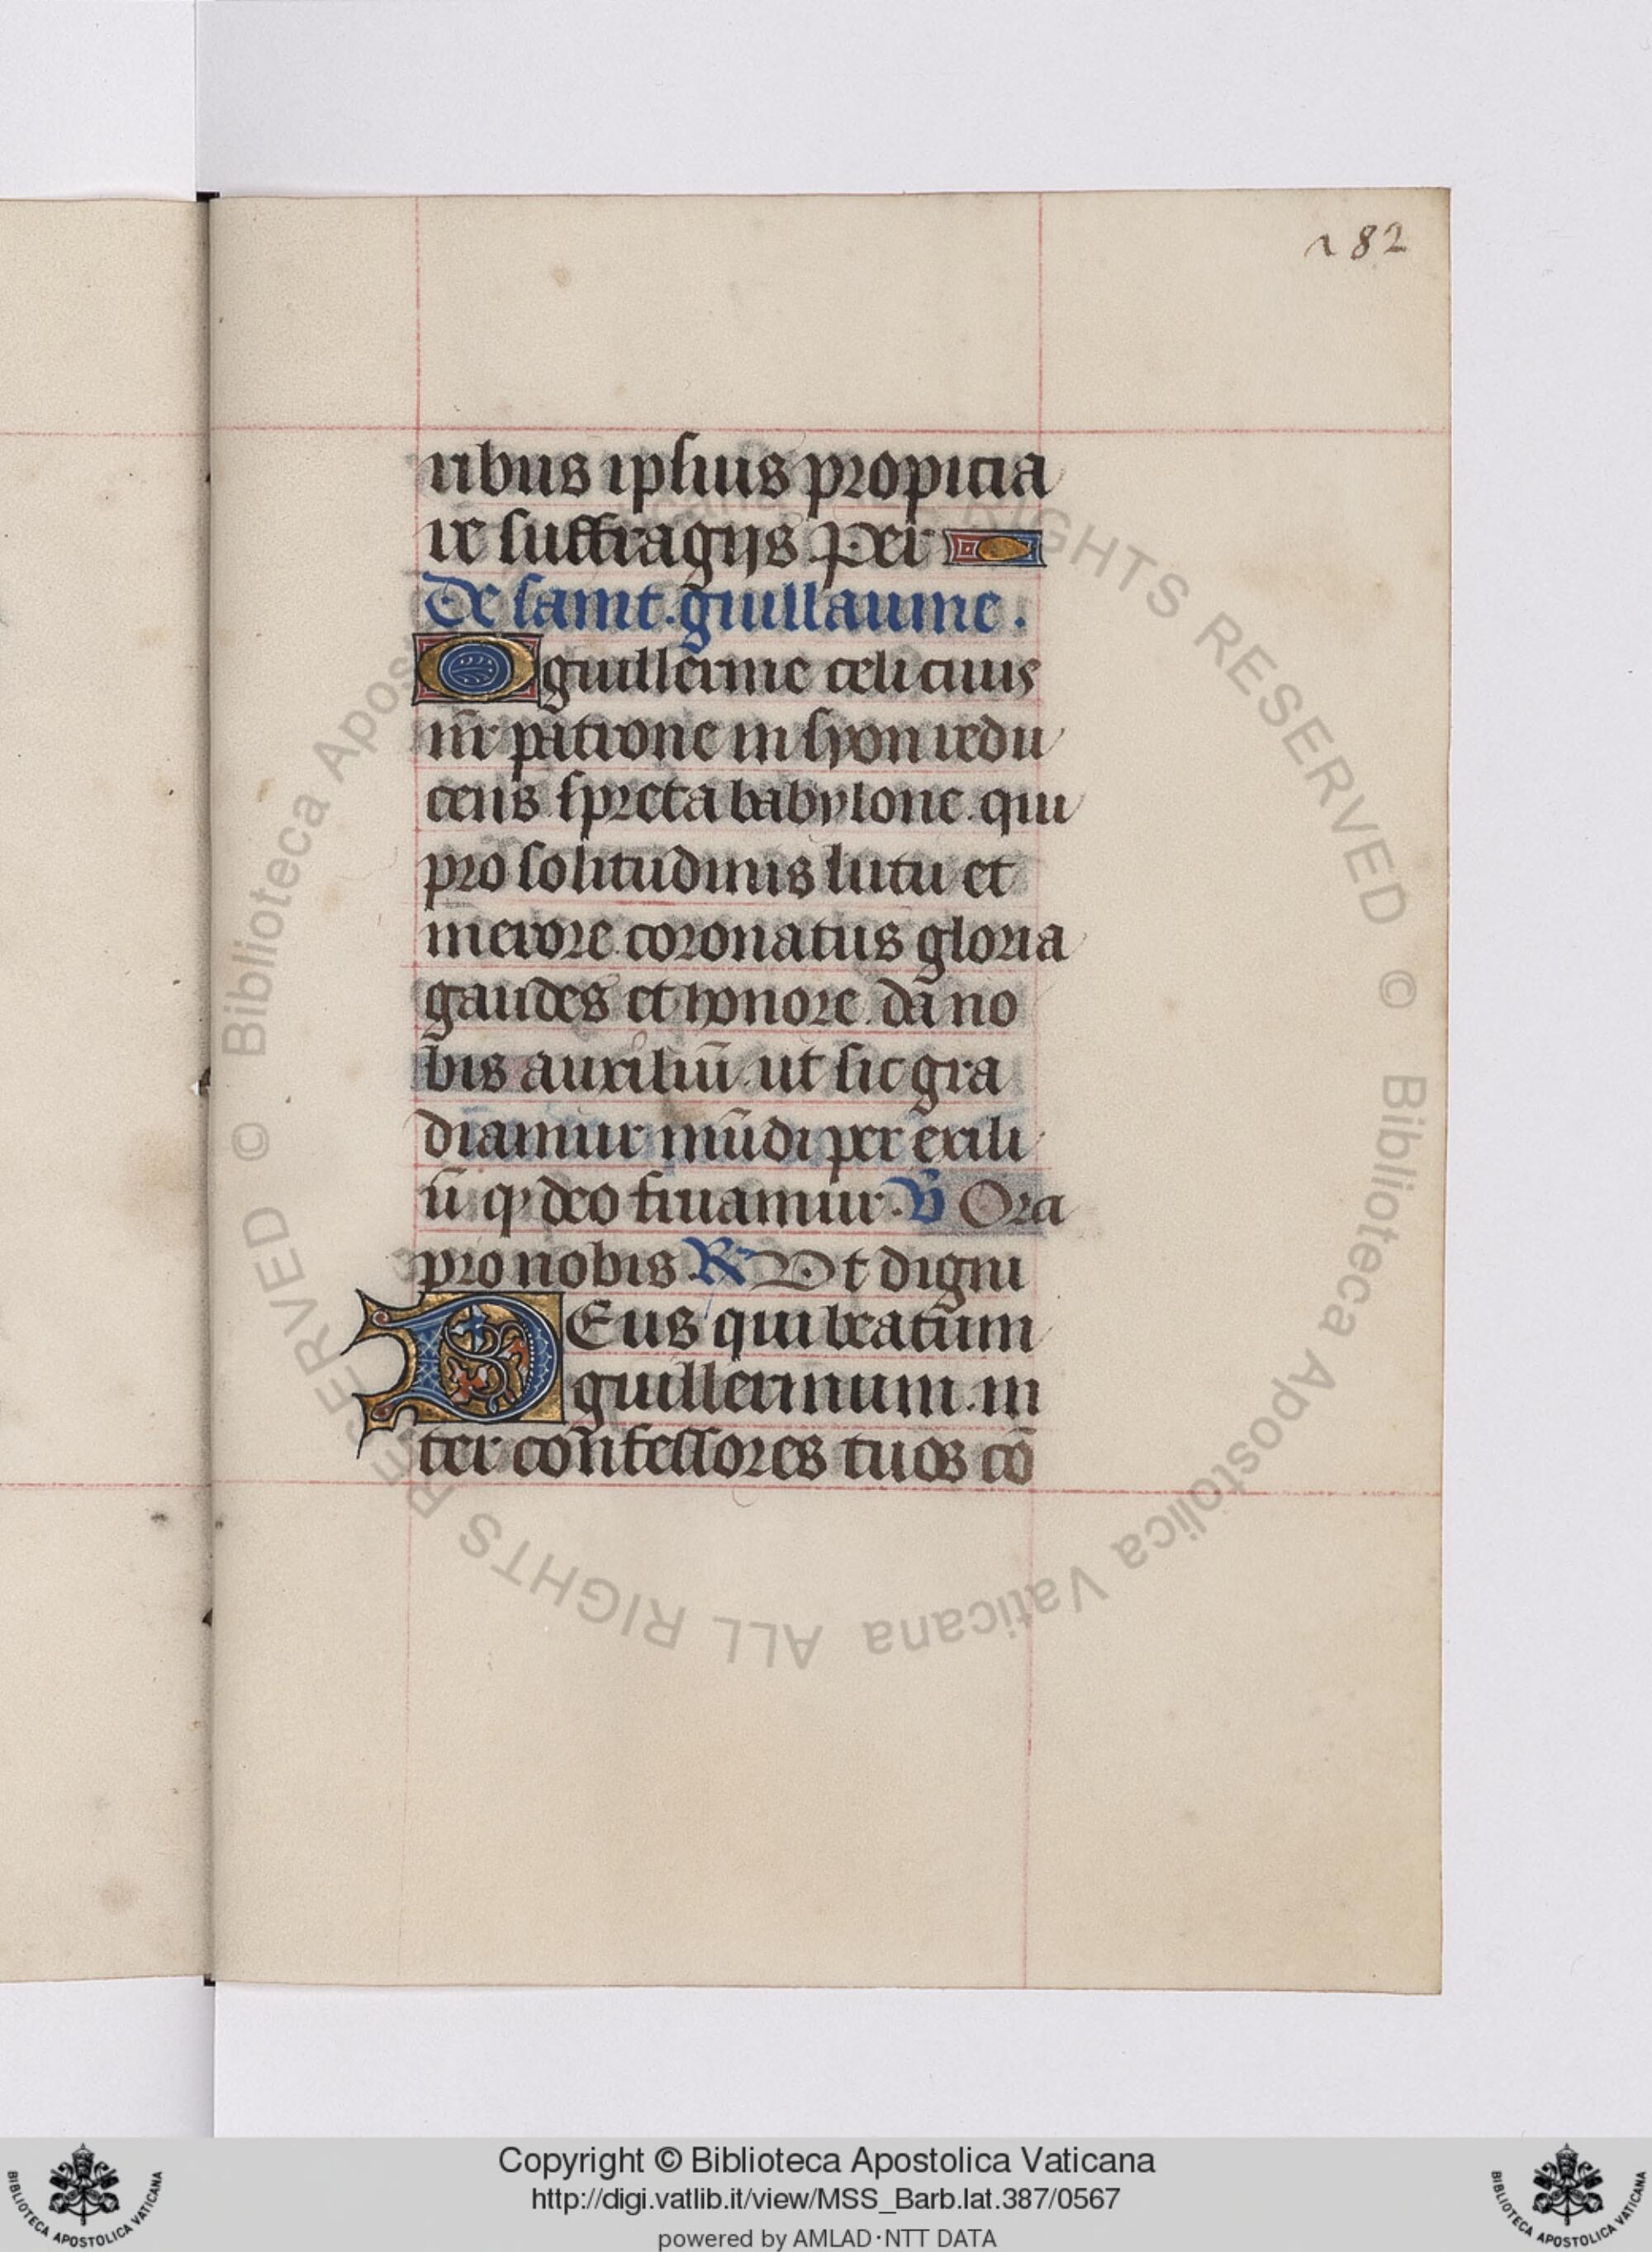 282
ribus ipsius propicia
re suffragijs Per
De saint. guillaume.
O guillerme celi ciuis
nr̄ patrone in syon redu
cens spreta babylone. qui
pro solitudinis luctu et
merore. coronatus gloria
gaudes et honore. da no
bis auxiliū. ut sic gra
diamur mūdi per exili
ū q deo fruamur. V Ora
pro nobis R Vt digni
DEus qui beatum
guillermum. in
ter confessores tuos cō
© Biblioteca Apostolica Vaticana ALL RIGHTS RESERVED © Biblioteca Apostolica Vaticana ALL RIGHTS RESERVED
Copyright © Biblioteca Apostolica Vaticana
http://digi.vatlib.it/view/MSS_Barb.lat.387/0567
powered by AMLAD·NTT DATA
BIBLIOTECA APOSTOLICA VATICANA
BIBLIOTECA APOSTOLICA VATICANA